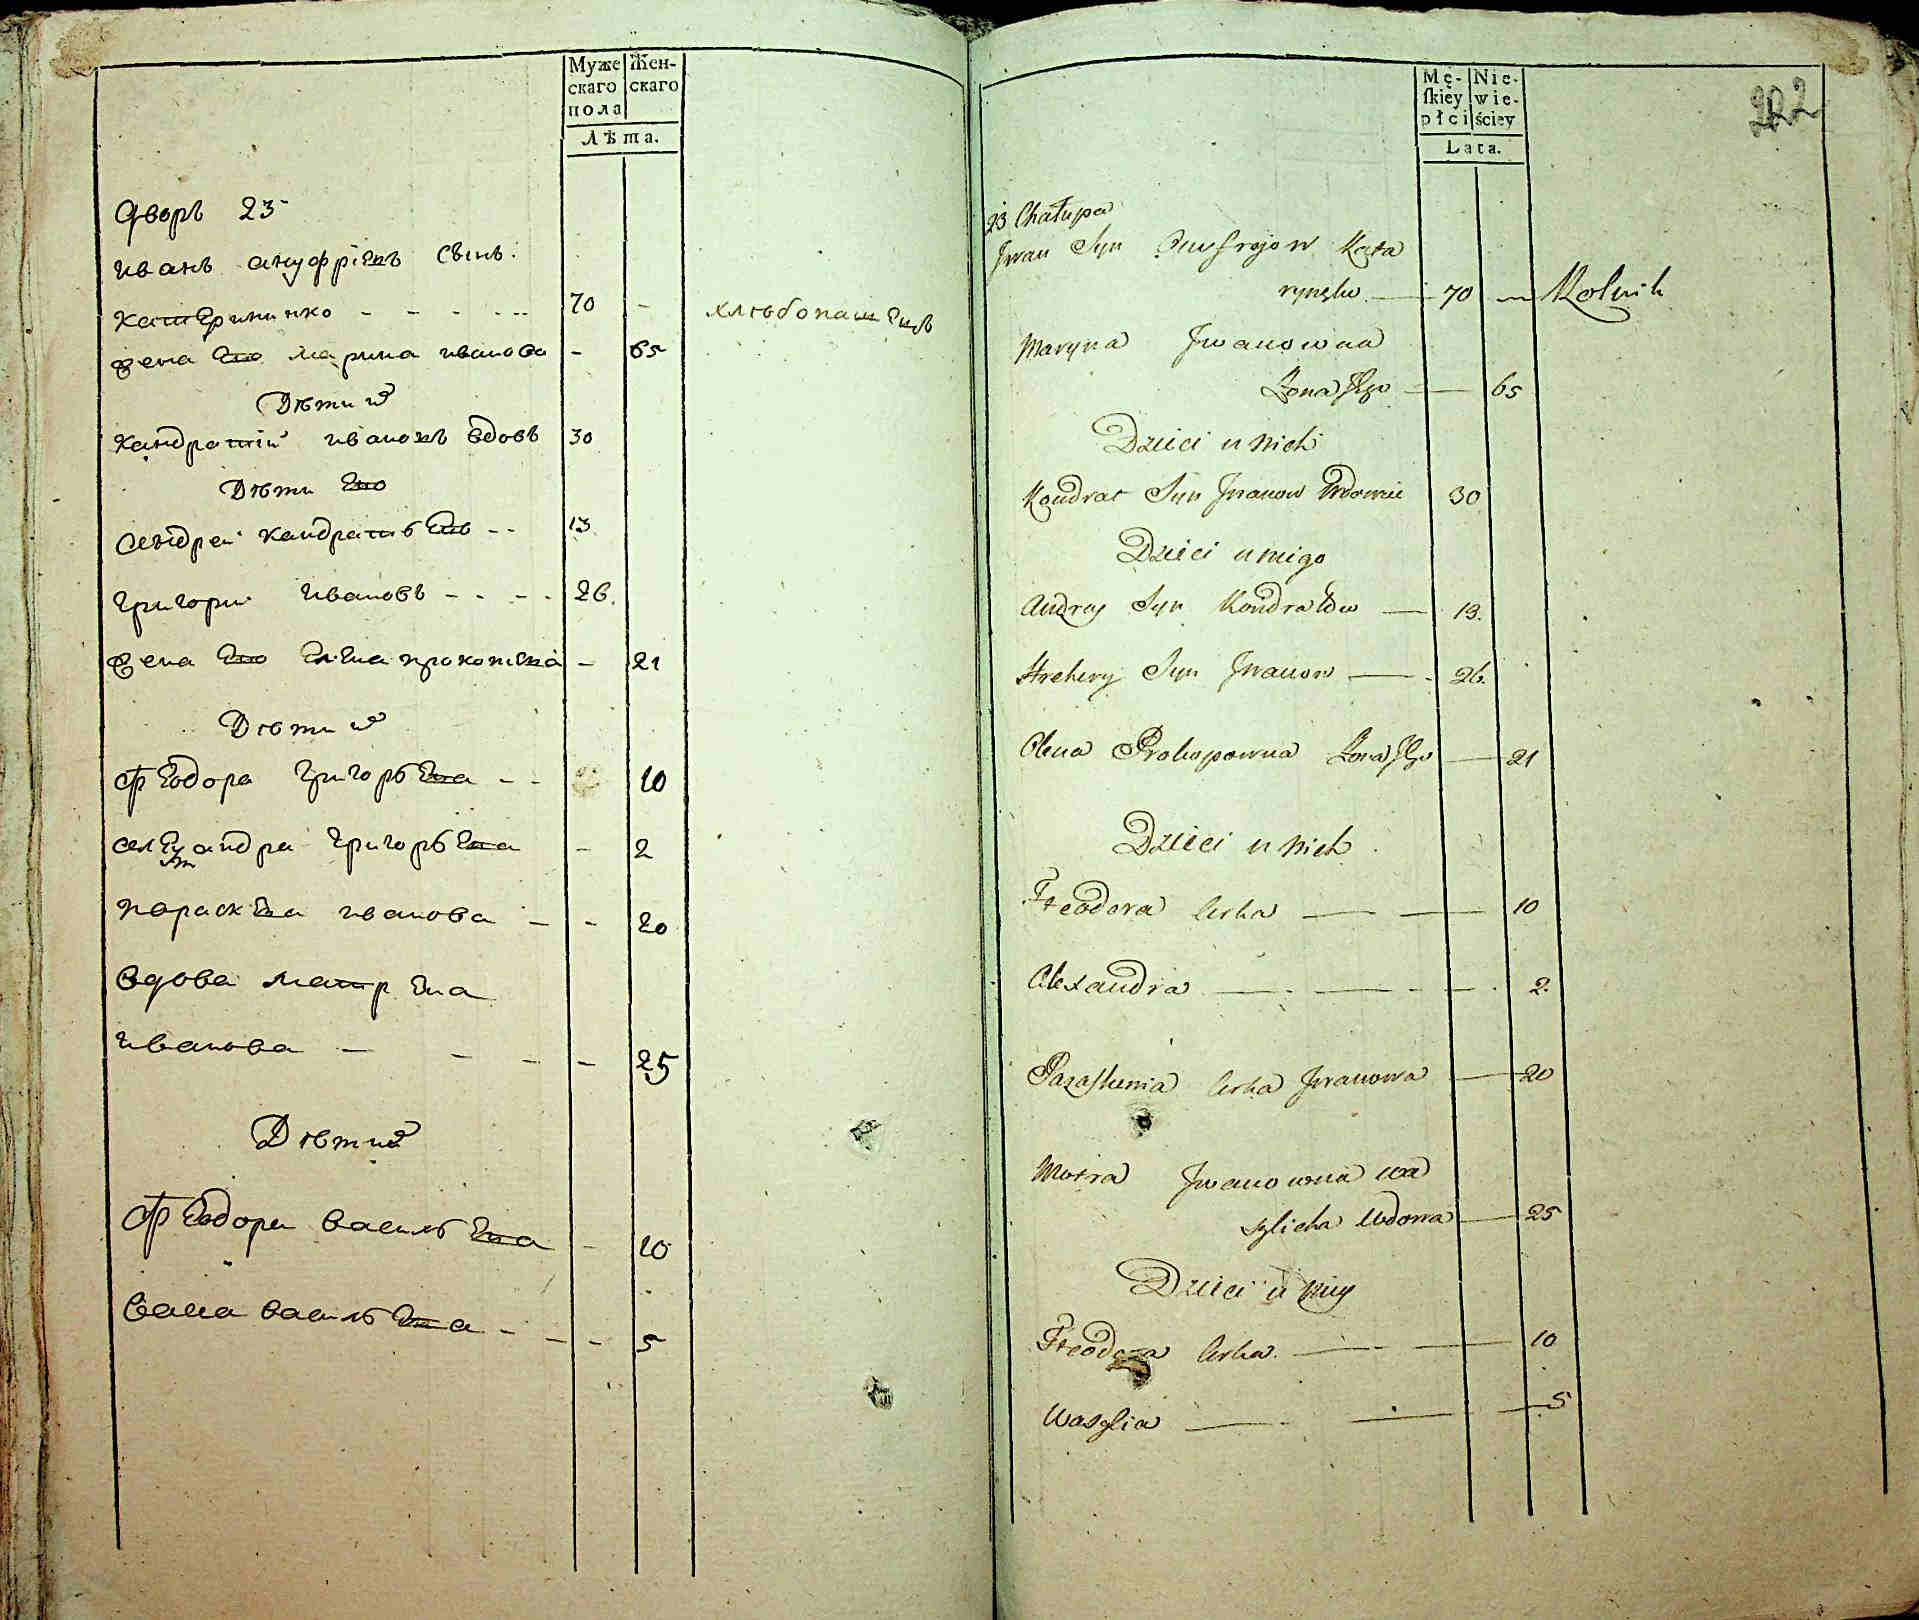 Муже
скаго
пола
Жен-
скаго
Лѣта.
Дворъ 23
иванъ ануфріевъ сынъ
катериничко - - - - 70 - хлѣбопашецъ
жена его марина иванова - 65
Дѣти ихъ
кандратий ивановъ вдовъ 30
Дѣти его
андрей кандратьевъ - - 13
григори ивановъ - - - - 26.
жена его елена прокопева - 21
Дѣти ихъ
Феодора григорьева - - 10
александра григорьева - 2
параскева иванова - - 20
вдова матрена
иванова - - - - 25
Дѣти ихъ
Феодора васильева - 10
васса васильева - - - 5
Mę-
skiey
płci
Nie-
wie-
ściey
Lata.
202
23 Chałupa
Jwan Syn Onufryiow Kata
rynsko — 70 — Rolnik
Maryna Jwanowna
Zona Jego — 65
Dzieci u nich
Kondrat Syn Jwanow Wdowiec 30
Dzieci u niego
Andrey Syn Kondratow — 13.
Hrehory Syn Jwanow — 26.
Olena Prokopowna Zona Jego — 21
Dzieci u nich
Fteodora Corka — — 10
Alexandra — — 2.
Paraskewia Corka Jwanowa — 20
Motra Jwanowna Wa
sylicha Wdowa — 25
Dzieci u niey
Fteodora Corka — — 10
Wasylia — — 5